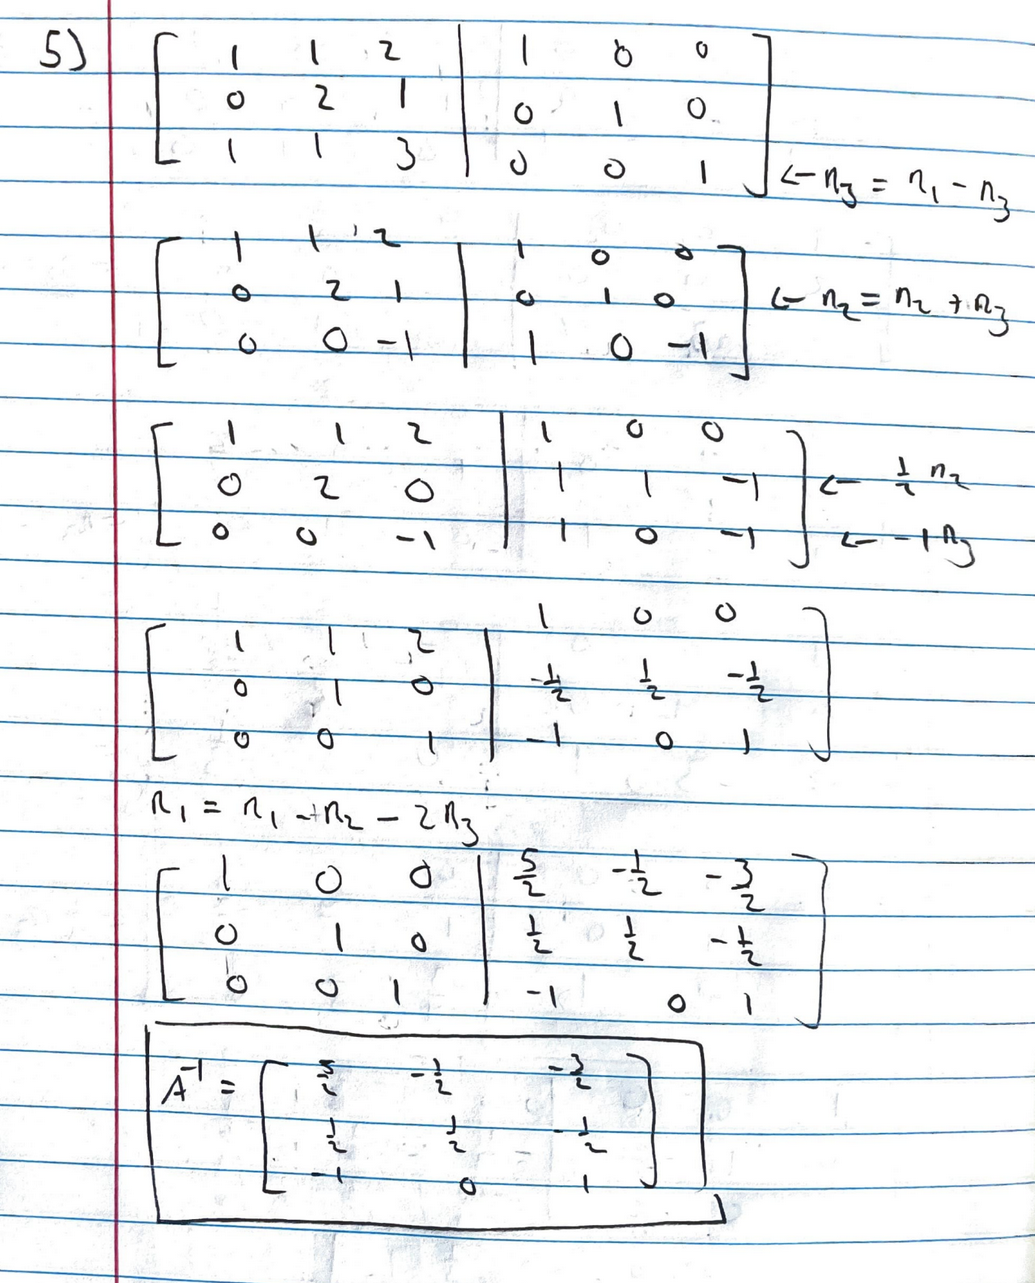 5) [ 1 1 2 | 1 0 0 ]
[ 0 2 1 | 0 1 0 ]
[ 1 1 3 | 0 0 1 ] ← r₃ = r₁ - r₃
[ 1 1 2 | 1 0 0 ]
[ 0 2 1 | 0 1 0 ] ← r₂ = r₂ + r₃
[ 0 0 -1 | 1 0 -1 ]
[ 1 1 2 | 1 0 0 ]
[ 0 2 0 | 1 1 -1 ] ← 1/2 r₂
[ 0 0 -1 | 1 0 -1 ] ← -1 r₃
[ 1 1 2 | 1 0 0 ]
[ 0 1 0 | -1/2 1/2 -1/2 ]
[ 0 0 1 | -1 0 1 ]
r₁ = r₁ - r₂ - 2r₃
[ 1 0 0 | 5/2 -1/2 -3/2 ]
[ 0 1 0 | 1/2 1/2 -1/2 ]
[ 0 0 1 | -1 0 1 ]
A⁻¹ = [ 5/2 -1/2 -3/2 ]
[ 1/2 1/2 -1/2 ]
[ -1 0 1 ]